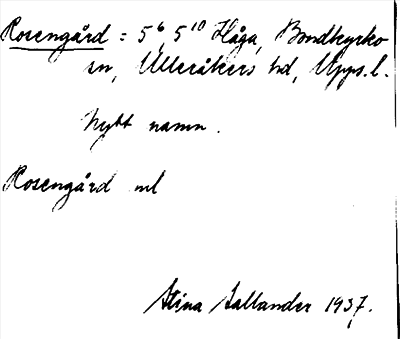 Rosengård = 5⁶, 5¹⁰ Håga, Bondkyrko
sn, Ulleråkers hd, Upps. l.
Nytt namn.
Rosengård ml
Stina Sallander 1937.